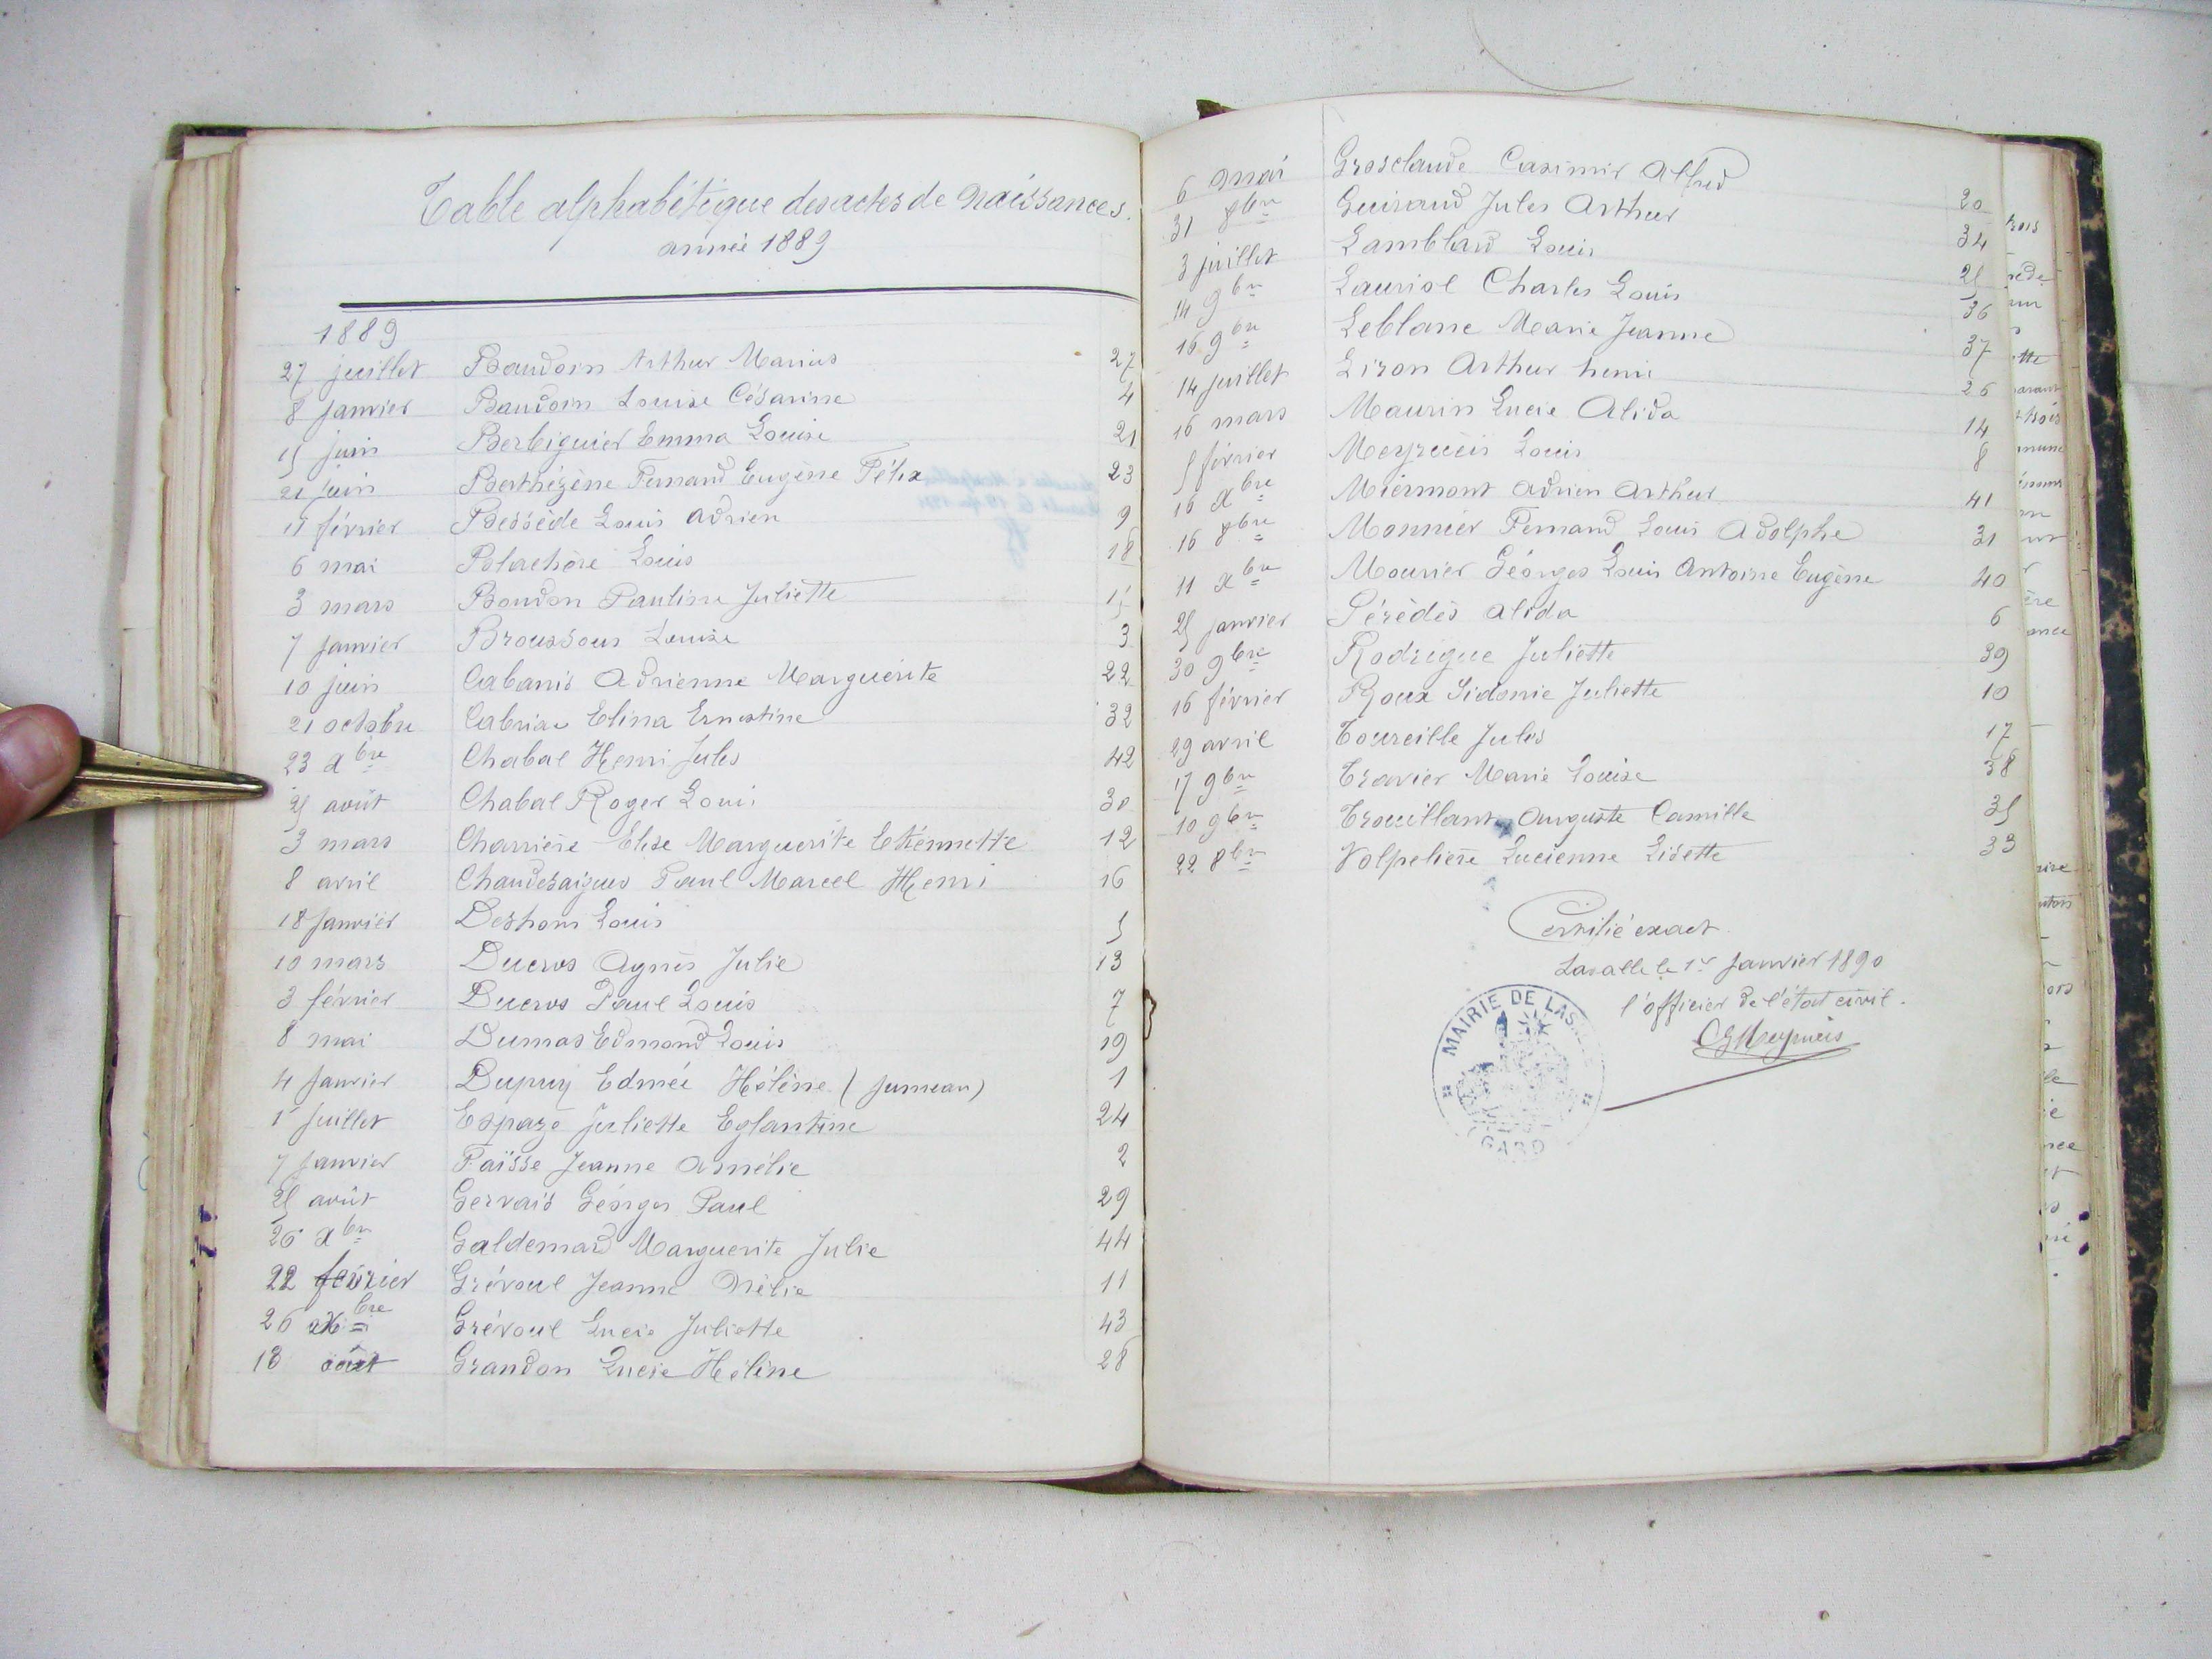 Table alphabétique des actes de Naissances.
année 1889
1889
27 juillet Baudoin Arthur Marius 27
8 janvier Baudoin Louise Césarine 4
15 juin Berbiguier Emma Louise 21
21 juin Berthézène Fernand Eugène Félix 23
11 février Bessède Louis Adrien 9
6 mai Blachère Louis 18
3 mars Boudon Pauline Juliette 15
7 janvier Broussous Louise 3
10 juin Cabanis Adrienne Marguerite 22
21 octobre Cabriac Elina Ernestine 32
23 Xbre Chabal Henri Jules 42
25 août Chabal Roger Louis 30
3 mars Charrière Elise Marguerite Etiennette 12
8 avril Chaudesaigues Paul Marcel Henri 16
18 Janvier Deshons Louis 5
10 mars Ducros Agnès Julie 13
3 février Ducros Paul Louis 7
8 mai Dumas Edmond Louis 19
4 Janvier Dupuy Edmée Hélène (jumeau) 1
1 Juillet Espaze Juliette Eglantine 24
7 Janvier Faïsse Jeanne Amélie 2
25 août Gervais Géorges Paul 29
26 Xbre Galdemard Marguerite Julie 44
22 février Grévoul Jeanne Nélie 11
26 Xbre Grévoul Lucie Juliette 43
18 août Grandon Lucie Hélène 28
6 Mai Grosclaude Casimir Alfred 20
31 8bre Guiraud Jules Arthur 34
3 juillet Lamblard Louis 25
14 9bre Lauriol Charles Louis 36
16 9bre Leblanc Marie Jeanne 37
14 juillet Liron Arthur henri 26
16 mars Maurin Lucie Alida 14
5 février Meyrueis Louis 8
16 Xbre Miermont Adrien Arthur 41
16 8bre Monnier Fernand Louis Adolphe 31
11 Xbre Mourier Géorges Louis Antoine Eugène 40
25 janvier Pérédès Alida 6
30 9bre Rodrigue Juliette 39
16 février Roux Sidonie Juliette 10
29 avril Toureille Jules 17
17 9bre Travier Marie Louise 38
10 9bre Trouillant Auguste Camille 35
22 8bre Volpelière Lucienne Lisette 33
Certifié exact
Lasalle le 1er Janvier 1890
l'officier de l'état civil.
MAIRIE DE LAS
GARD